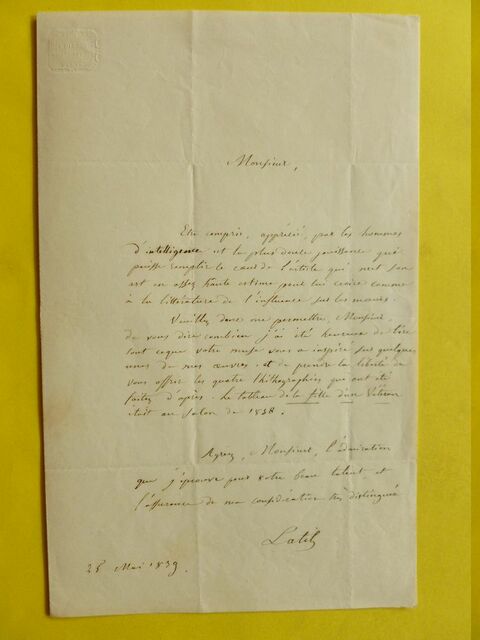 Monsieur,
Etre compris, apprécié, par les hommes
d'intelligence est la plus douce jouissance qui
puisse remplir le cœur de l'artiste qui met son
art en assez haute estime pour lui croire comme
à la littérature de l'influence sur les mœurs.
Veuillez donc me permettre, Monsieur
de vous dire combien j'ai été heureux de lire
tout ce que votre muse vous a inspiré sur quelques
unes de mes œuvres, et de prendre la liberté de
vous offrir les quatre lithographies qui ont été
faites d'après. Le tableau de la fille d'un Vétéran
était au Salon de 1838.
Agréez, Monsieur, l'admiration
que j'éprouve pour votre beau talent et
l'assurance de ma considération très distinguée
Latil
25 Mai 1839.